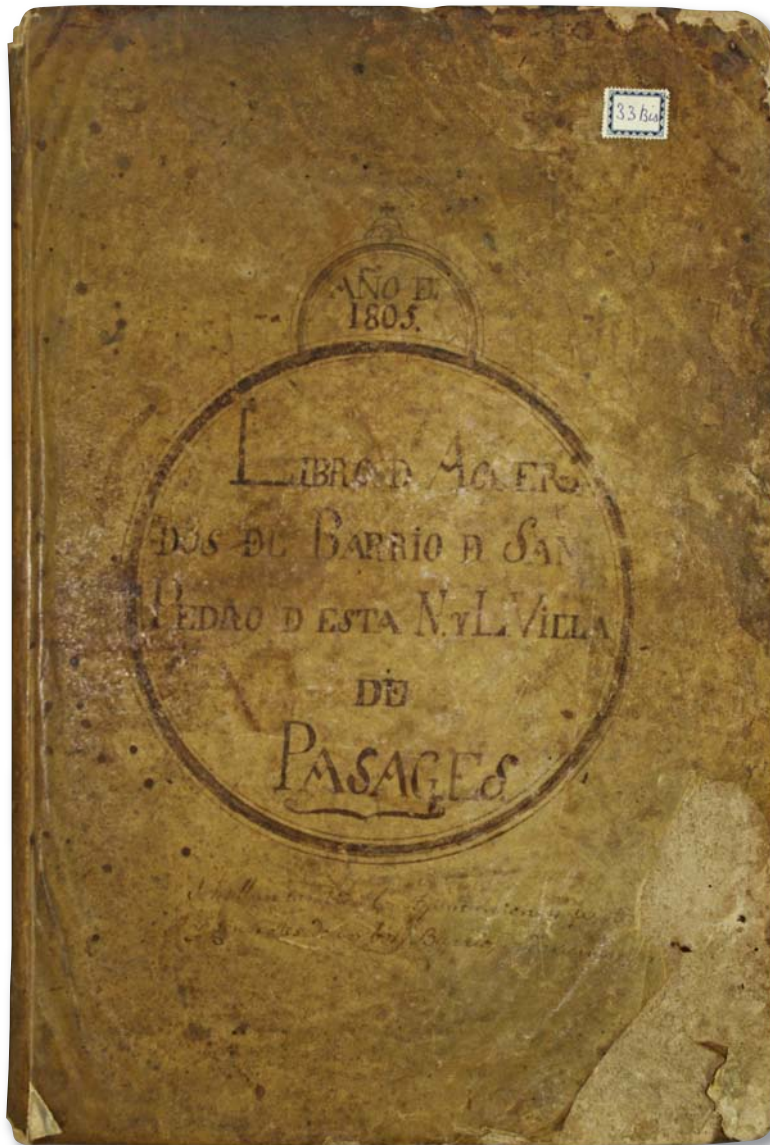 33 Bis
AÑO D.
1805.
LIBRO D. ACUER-
DOS DE BARRIO D SAN
PEDRO D ESTA N. Y L. VILLA
DE
PASAGES
Barrio